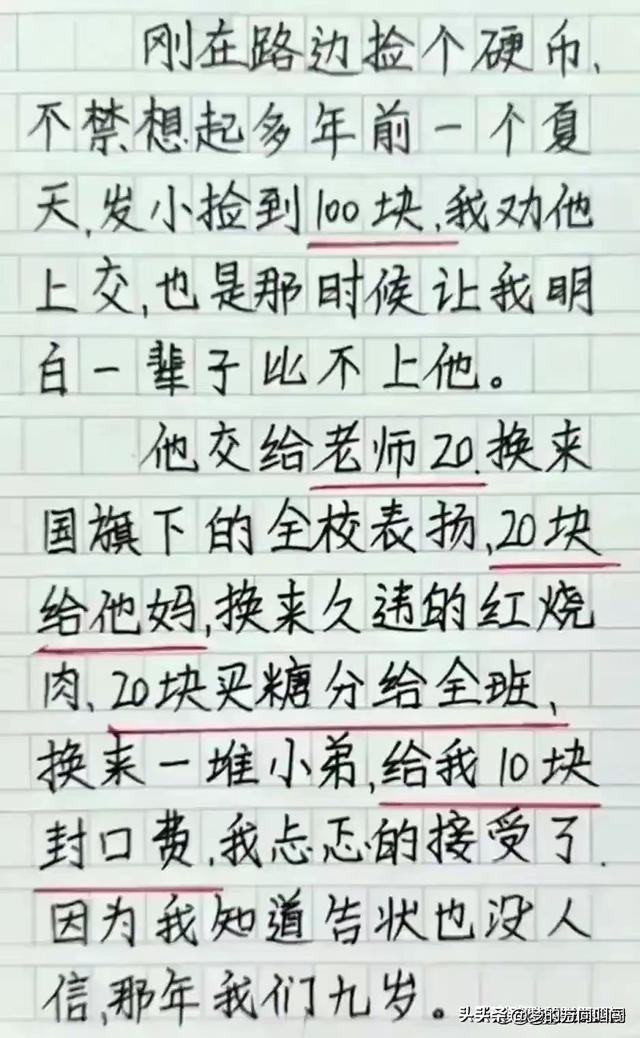 刚在路边捡个硬币,
不禁想起多年前一个夏
天,发小捡到100块,我劝他
上交,也是那时候让我明
白一辈子比不上他。
他交给老师20.换来
国旗下的全校表扬,20块
给他妈,换来久违的红烧
肉、20块买糖分给全班,
换来一堆小弟,给我10块
封口费,我忐忑的接受了.
因为我知道告状也没人
信,那年我们九岁。
头条